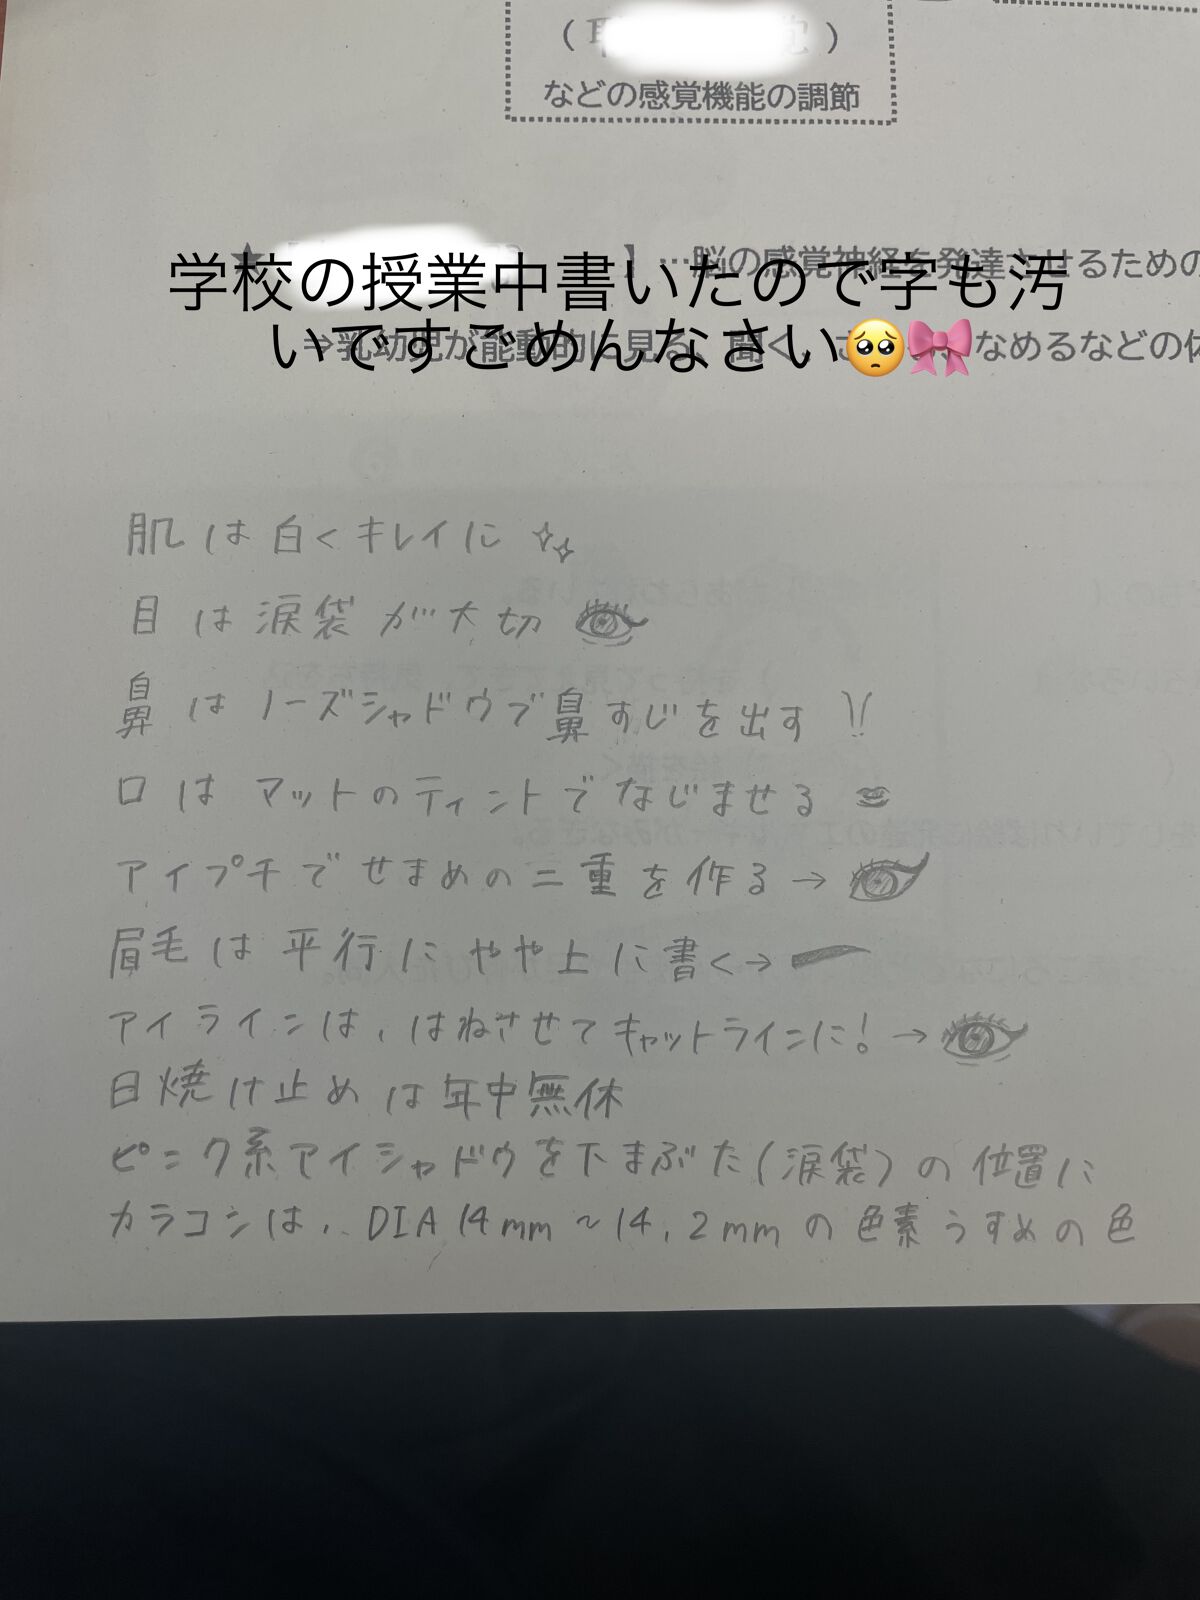 (
)
などの感覚機能の調節
】…脳の感覚神経を発達させるための
学校の授業中書いたので字も汚
いですごめんなさい🥺🎀
⇒乳幼児が能動的に見る、聞く、 なめるなどの体
肌は白くキレイに
目は涙袋が大切
鼻はノーズシャドウで鼻すじを出す
口はマットのティントでなじませる
アイプチでせまめの三重を作る→
眉毛は平行にやや上に書く→
アイラインは、はねさせてキャットラインに!→
日焼け止めは年中無休
ピンク系アイシャドウを下まぶた(涙袋)の位置に
カラコンは、DIA 14mm~14.2mmの色素うすめの色